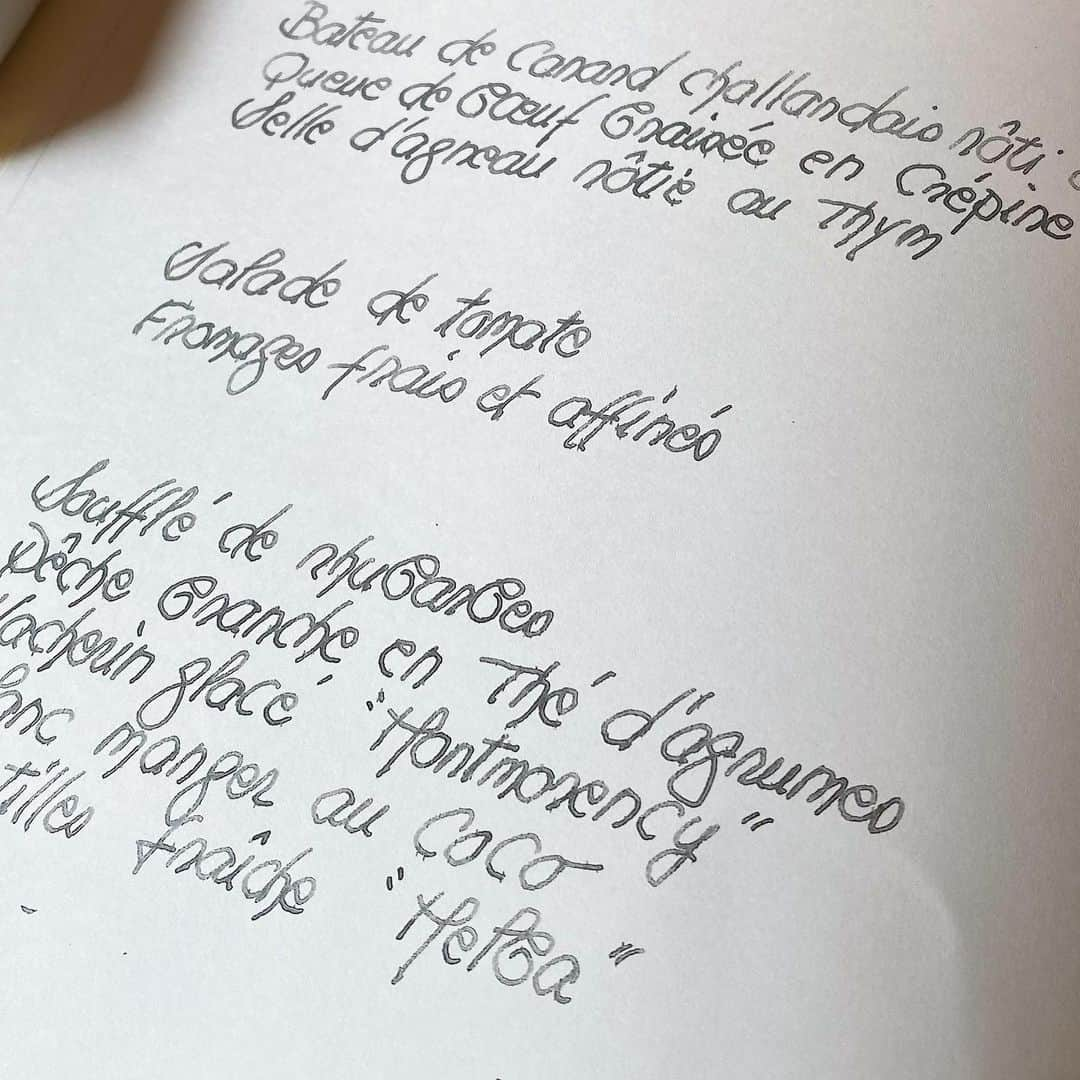 Bateau de Canard challandais rôti
Queue de Bœuf Braisée en Crépine
Selle d'agneau rôtie au Thym
Salade de tomate
Fromages frais et affinés
Soufflé de rhubarbes
Pêche Branche en Thé d'agrumes
Vacherin glacé "Montmorency"
lanc manger au coco
tilles fraîche "Melba"